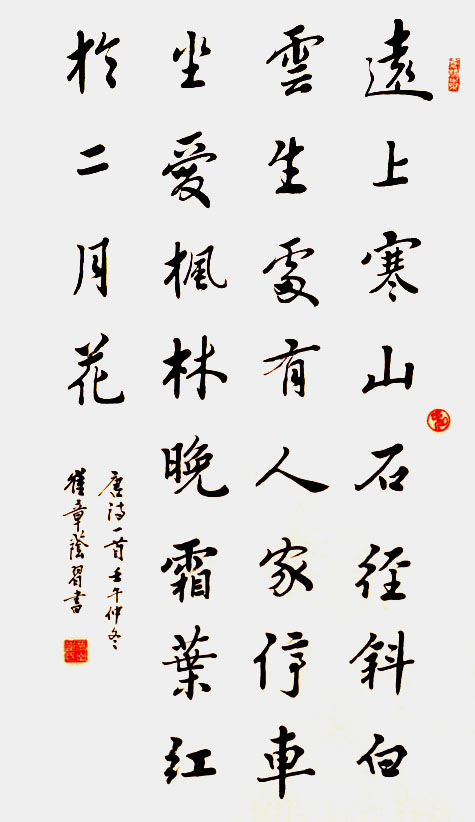 遠上寒山石径斜白
雲生處有人家停車
坐愛楓林晚霜葉紅
於二月花
唐詩一首壬午仲冬
崔章蔭習書